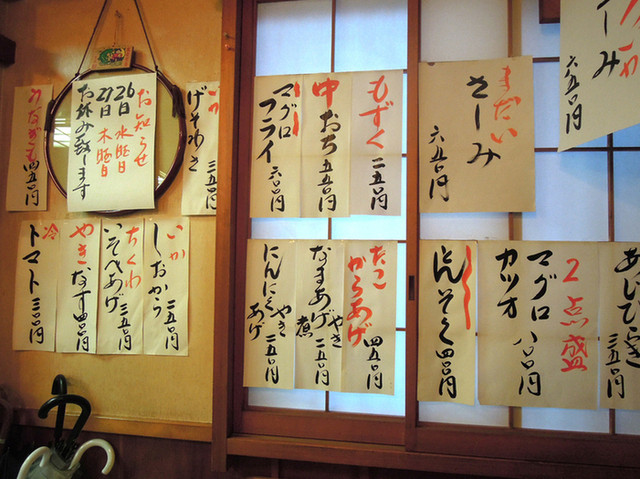 お知らせ
26日 水曜日
27日 木曜日
お休み致します
四五〇円
げそわさ
三五〇円
冷
トマト 三〇〇円
やき
なす 四五〇円
ちくわ
いそべあげ
三五〇円
いか
しおから
二五〇円
マグロ
フライ
六五〇円
中おち
五五〇円
もずく
二五〇円
にんにく
やき
あげ
二五〇円
なまあげ
やき
煮
二五〇円
たこ
からあげ
四五〇円
まだい
さしみ
六五〇円
さしみ
六五〇円
四五〇円
2点盛
マグロ
カツオ
八〇〇円
三五〇円